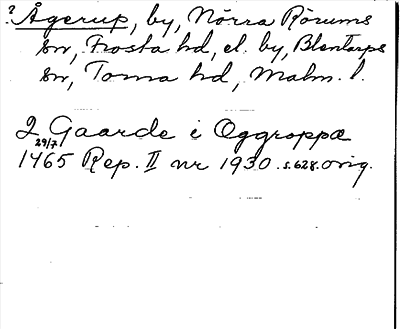 ? Ågerup, by, Nörra Rörums
sn, Frosta hd, el. by, Blentarps
sn, Torna hd, Malm. l.
2 Gaarde i Oggroppæ
29/7
1465 Rep. II nr 1930. s. 628. orig.